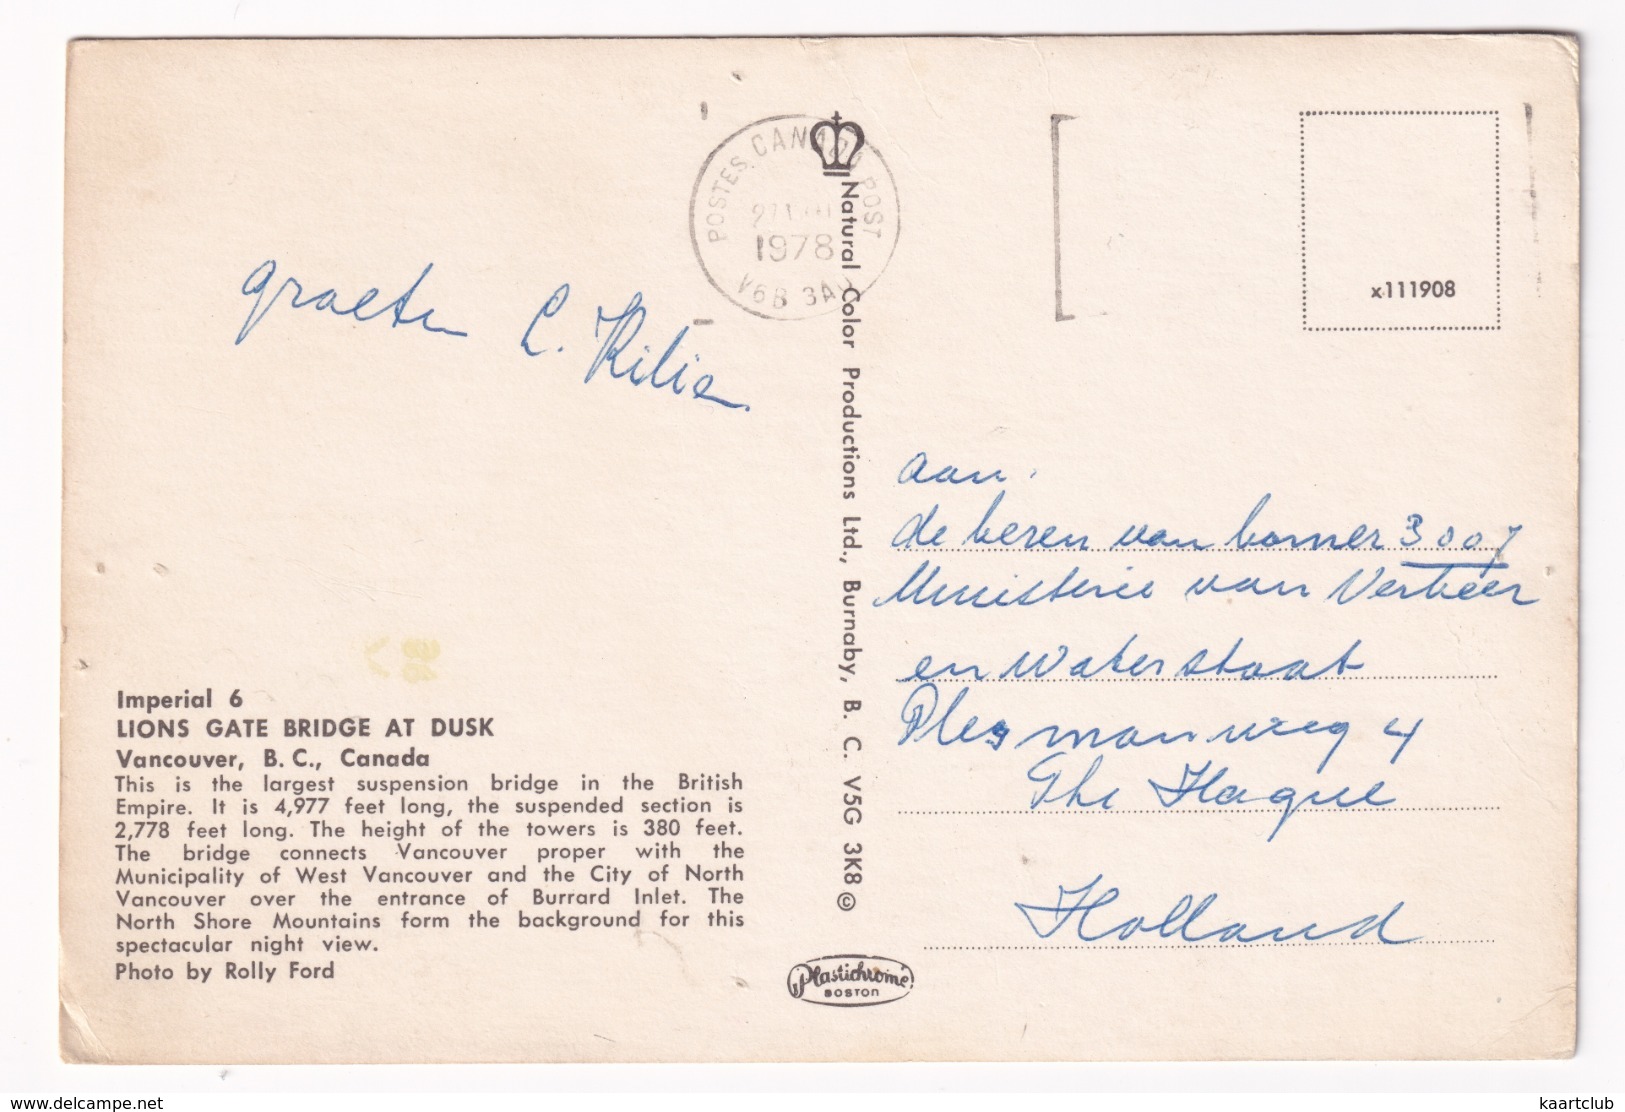 POSTES CANADA POST
1978
V6B 3A
x111908
graeten L. Kilia
aan.
de heren van kamer 3007
Ministerie van Verkeer
en Waterstaat
Plesmanweg 4
The Hague
Holland
Imperial 6
LIONS GATE BRIDGE AT DUSK
Vancouver, B. C., Canada
This is the largest suspension bridge in the British
Empire. It is 4,977 feet long, the suspended section is
2,778 feet long. The height of the towers is 380 feet.
The bridge connects Vancouver proper with the
Municipality of West Vancouver and the City of North
Vancouver over the entrance of Burrard Inlet. The
North Shore Mountains form the background for this
spectacular night view.
Photo by Rolly Ford
Natural Color Productions Ltd., Burnaby, B. C. V5G 3K8 ©
Plastichrome
BOSTON
www.delcampe.net
kaartclub